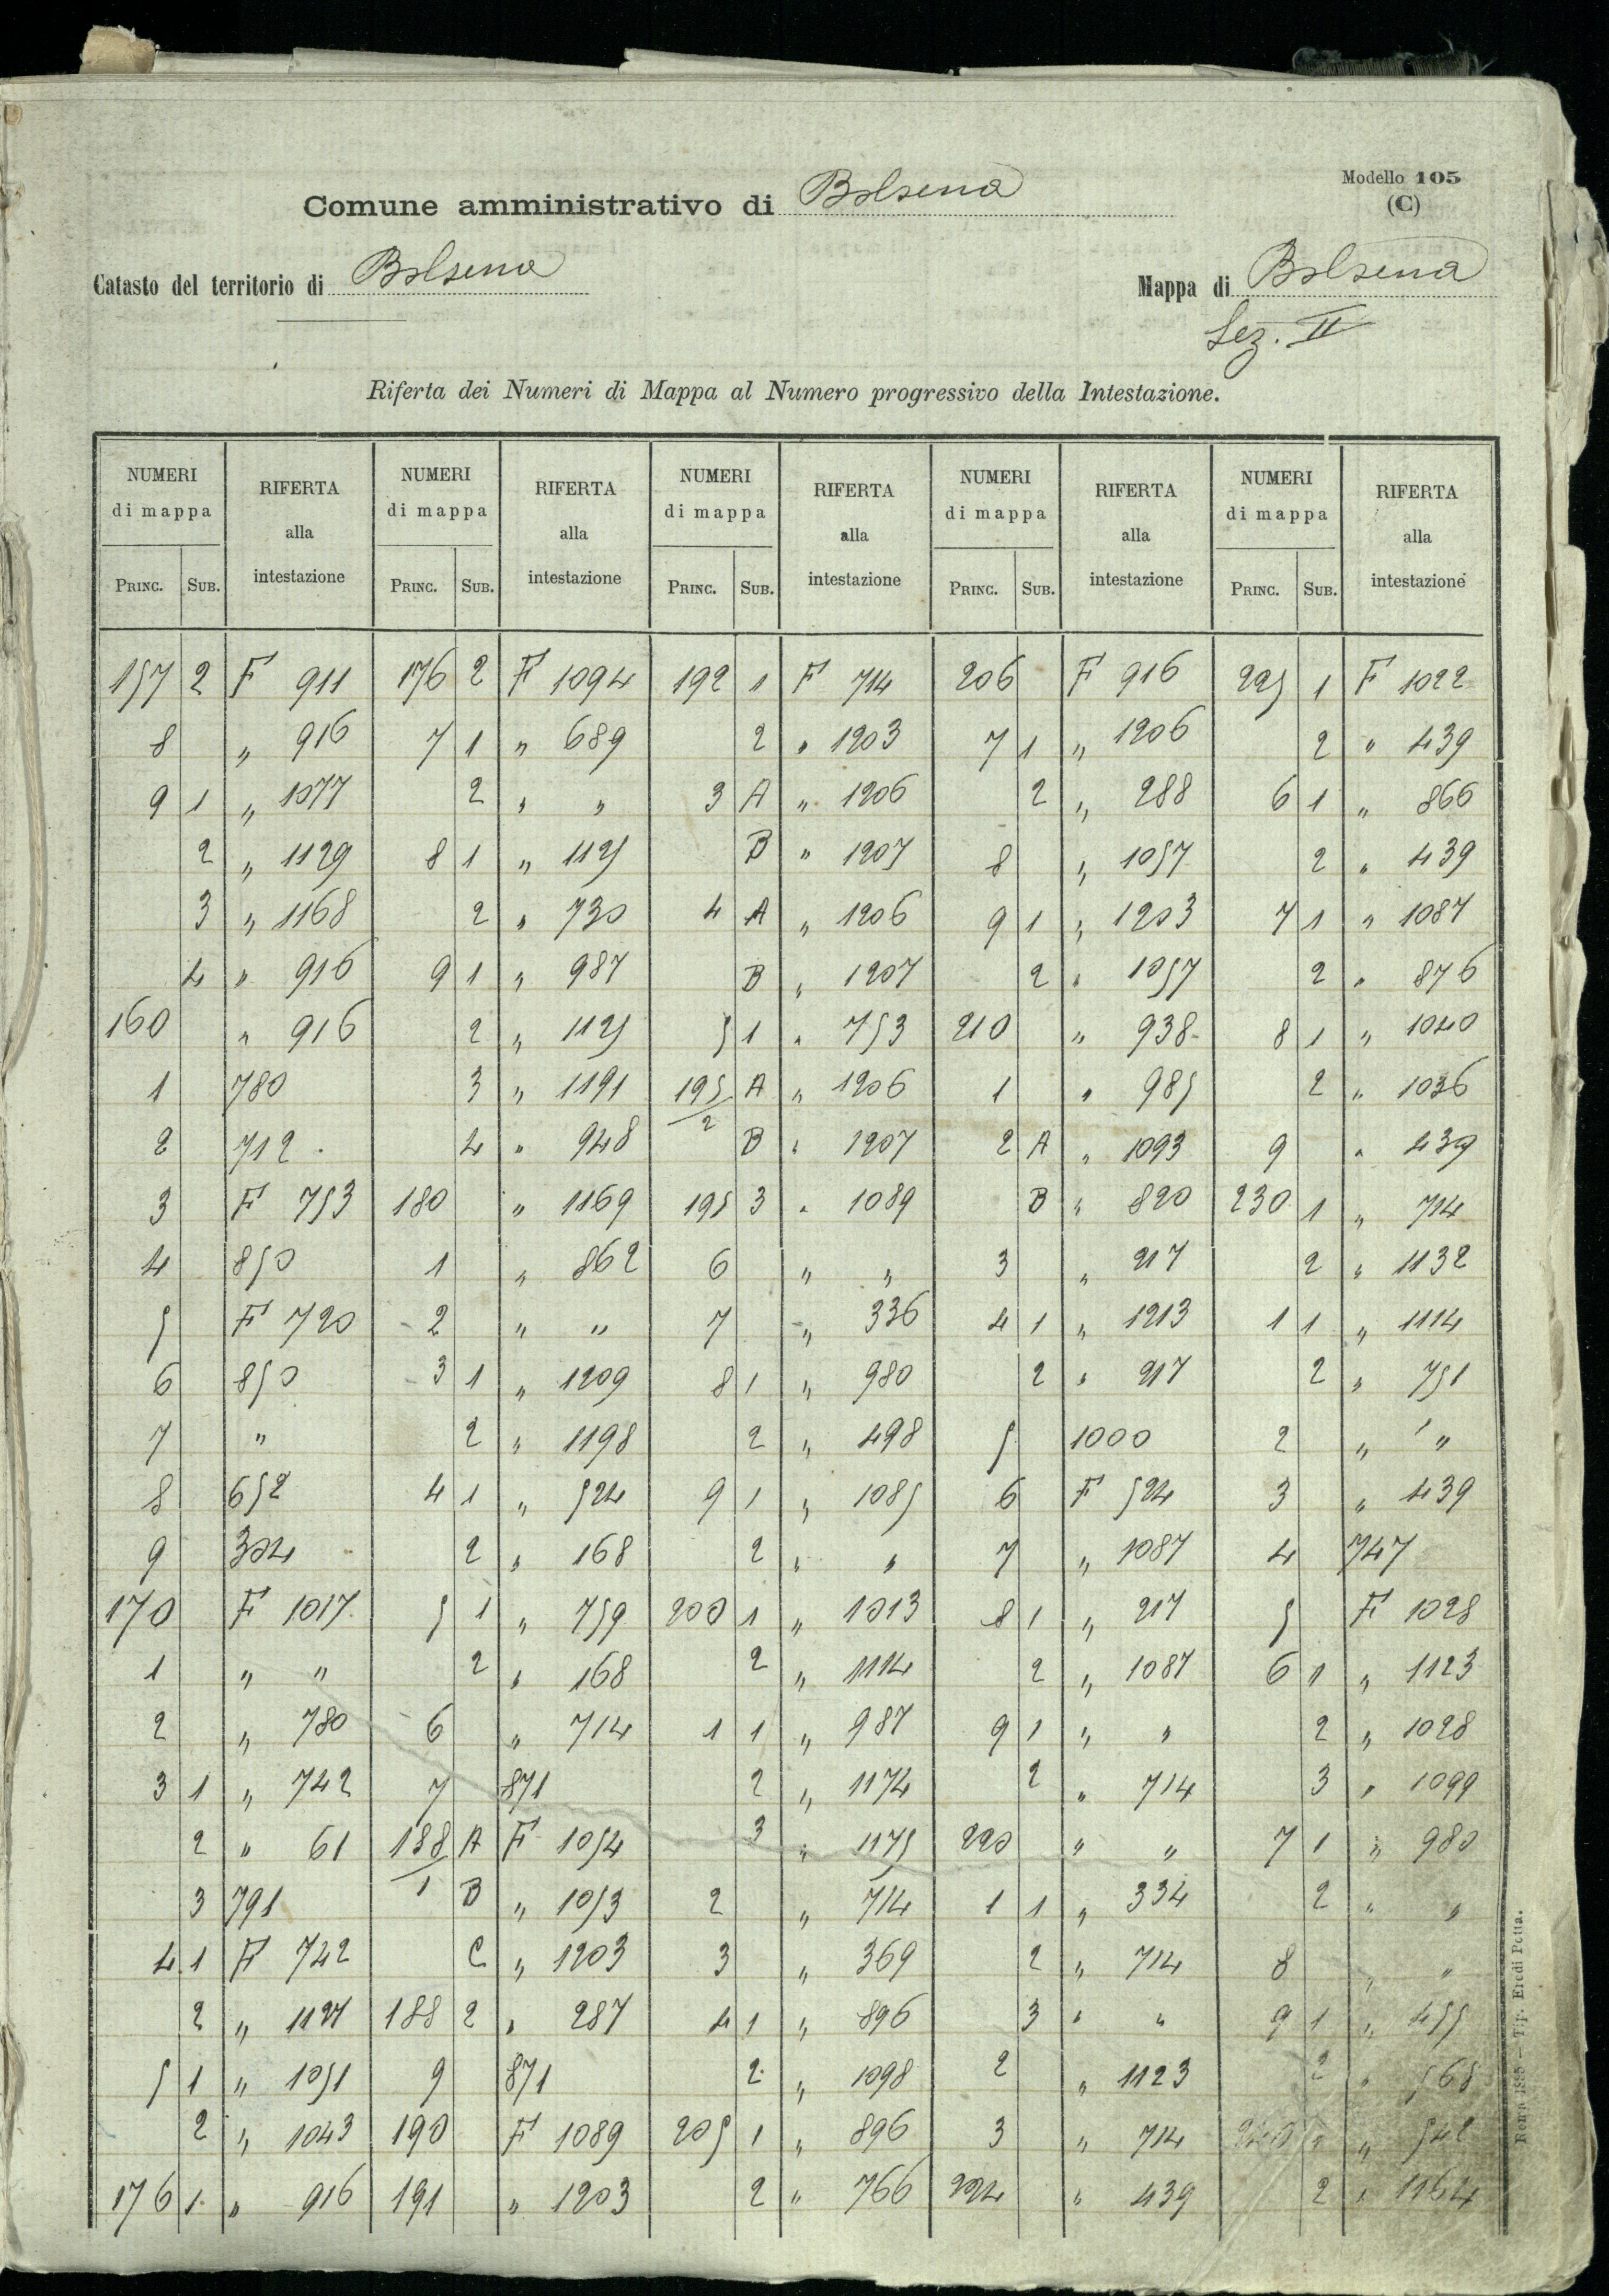 Modello 105
(C)
Comune amministrativo di Bolsena
Catasto del territorio di Bolsena
Mappa di Bolsena
Sez. II
Riferta dei Numeri di Mappa al Numero progressivo della Intestazione.
NUMERI di mappa RIFERTA alla intestazione NUMERI di mappa RIFERTA alla intestazione NUMERI di mappa RIFERTA alla intestazione NUMERI di mappa RIFERTA alla intestazione NUMERI di mappa RIFERTA alla intestazione
PRINC. SUB. PRINC. SUB. PRINC. SUB. PRINC. SUB. PRINC. SUB.
157 2 F 911 176 2 F 1094 192 1 F 714 206 F 916 225 1 F 1022
8 " 916 7 1 " 689 2 " 1203 7 1 " 1206 2 " 439
9 1 " 1077 2 " " 3 A " 1206 2 " 288 6 1 " 866
2 " 1129 8 1 " 1125 B " 1207 8 " 1057 2 " 439
3 " 1168 2 " 730 4 A " 1206 9 1 " 1203 7 1 " 1087
4 " 916 9 1 " 987 B " 1207 2 " 1057 2 " 876
160 " 916 2 " 1125 5 1 " 753 210 " 938 8 1 " 1040
1 780 3 " 1191 195/2 A " 1206 1 " 985 2 " 1036
2 712 4 " 948 B " 1207 2 A " 1093 9 " 439
3 F 753 180 " 1169 195 3 " 1089 B " 820 230 1 " 714
4 850 1 " 862 6 " " 3 " 217 2 " 1132
5 F 720 2 " " 7 " 336 4 1 " 1213 1 1 " 1114
6 850 3 1 " 1209 8 1 " 980 2 " 217 2 " 751
7 " 2 " 1198 2 " 498 5 1000 2 " "
8 652 4 1 " 524 9 1 " 1085 6 F 524 3 " 439
9 304 2 " 168 2 " " 7 " 1087 4 747
170 F 1017 5 1 " 759 200 1 " 1013 8 1 " 217 5 F 1028
1 " " 2 " 168 2 " 1114 2 " 1087 6 1 " 1123
2 " 780 6 " 714 1 1 " 987 9 1 " " 2 " 1028
3 1 " 742 7 871 2 " 1174 2 " 714 3 " 1099
2 " 61 188/1 A F 1054 3 " 1175 220 " " 7 1 " 980
3 791 B " 1053 2 " 714 1 1 " 334 2 " "
4 1 F 742 C " 1203 3 " 369 2 " 714 8 " "
2 " 1127 188 2 " 287 4 1 " 896 3 " " 9 1 " 455
5 1 " 1051 9 871 2 " 1098 2 " 1123 2 " 568
2 " 1043 190 F 1089 205 1 " 896 3 " 714 " 542
176 1 " 916 191 " 1203 2 " 766 224 " 439 2 " 1164
Roma 1885 — Tip. Eredi Botta.